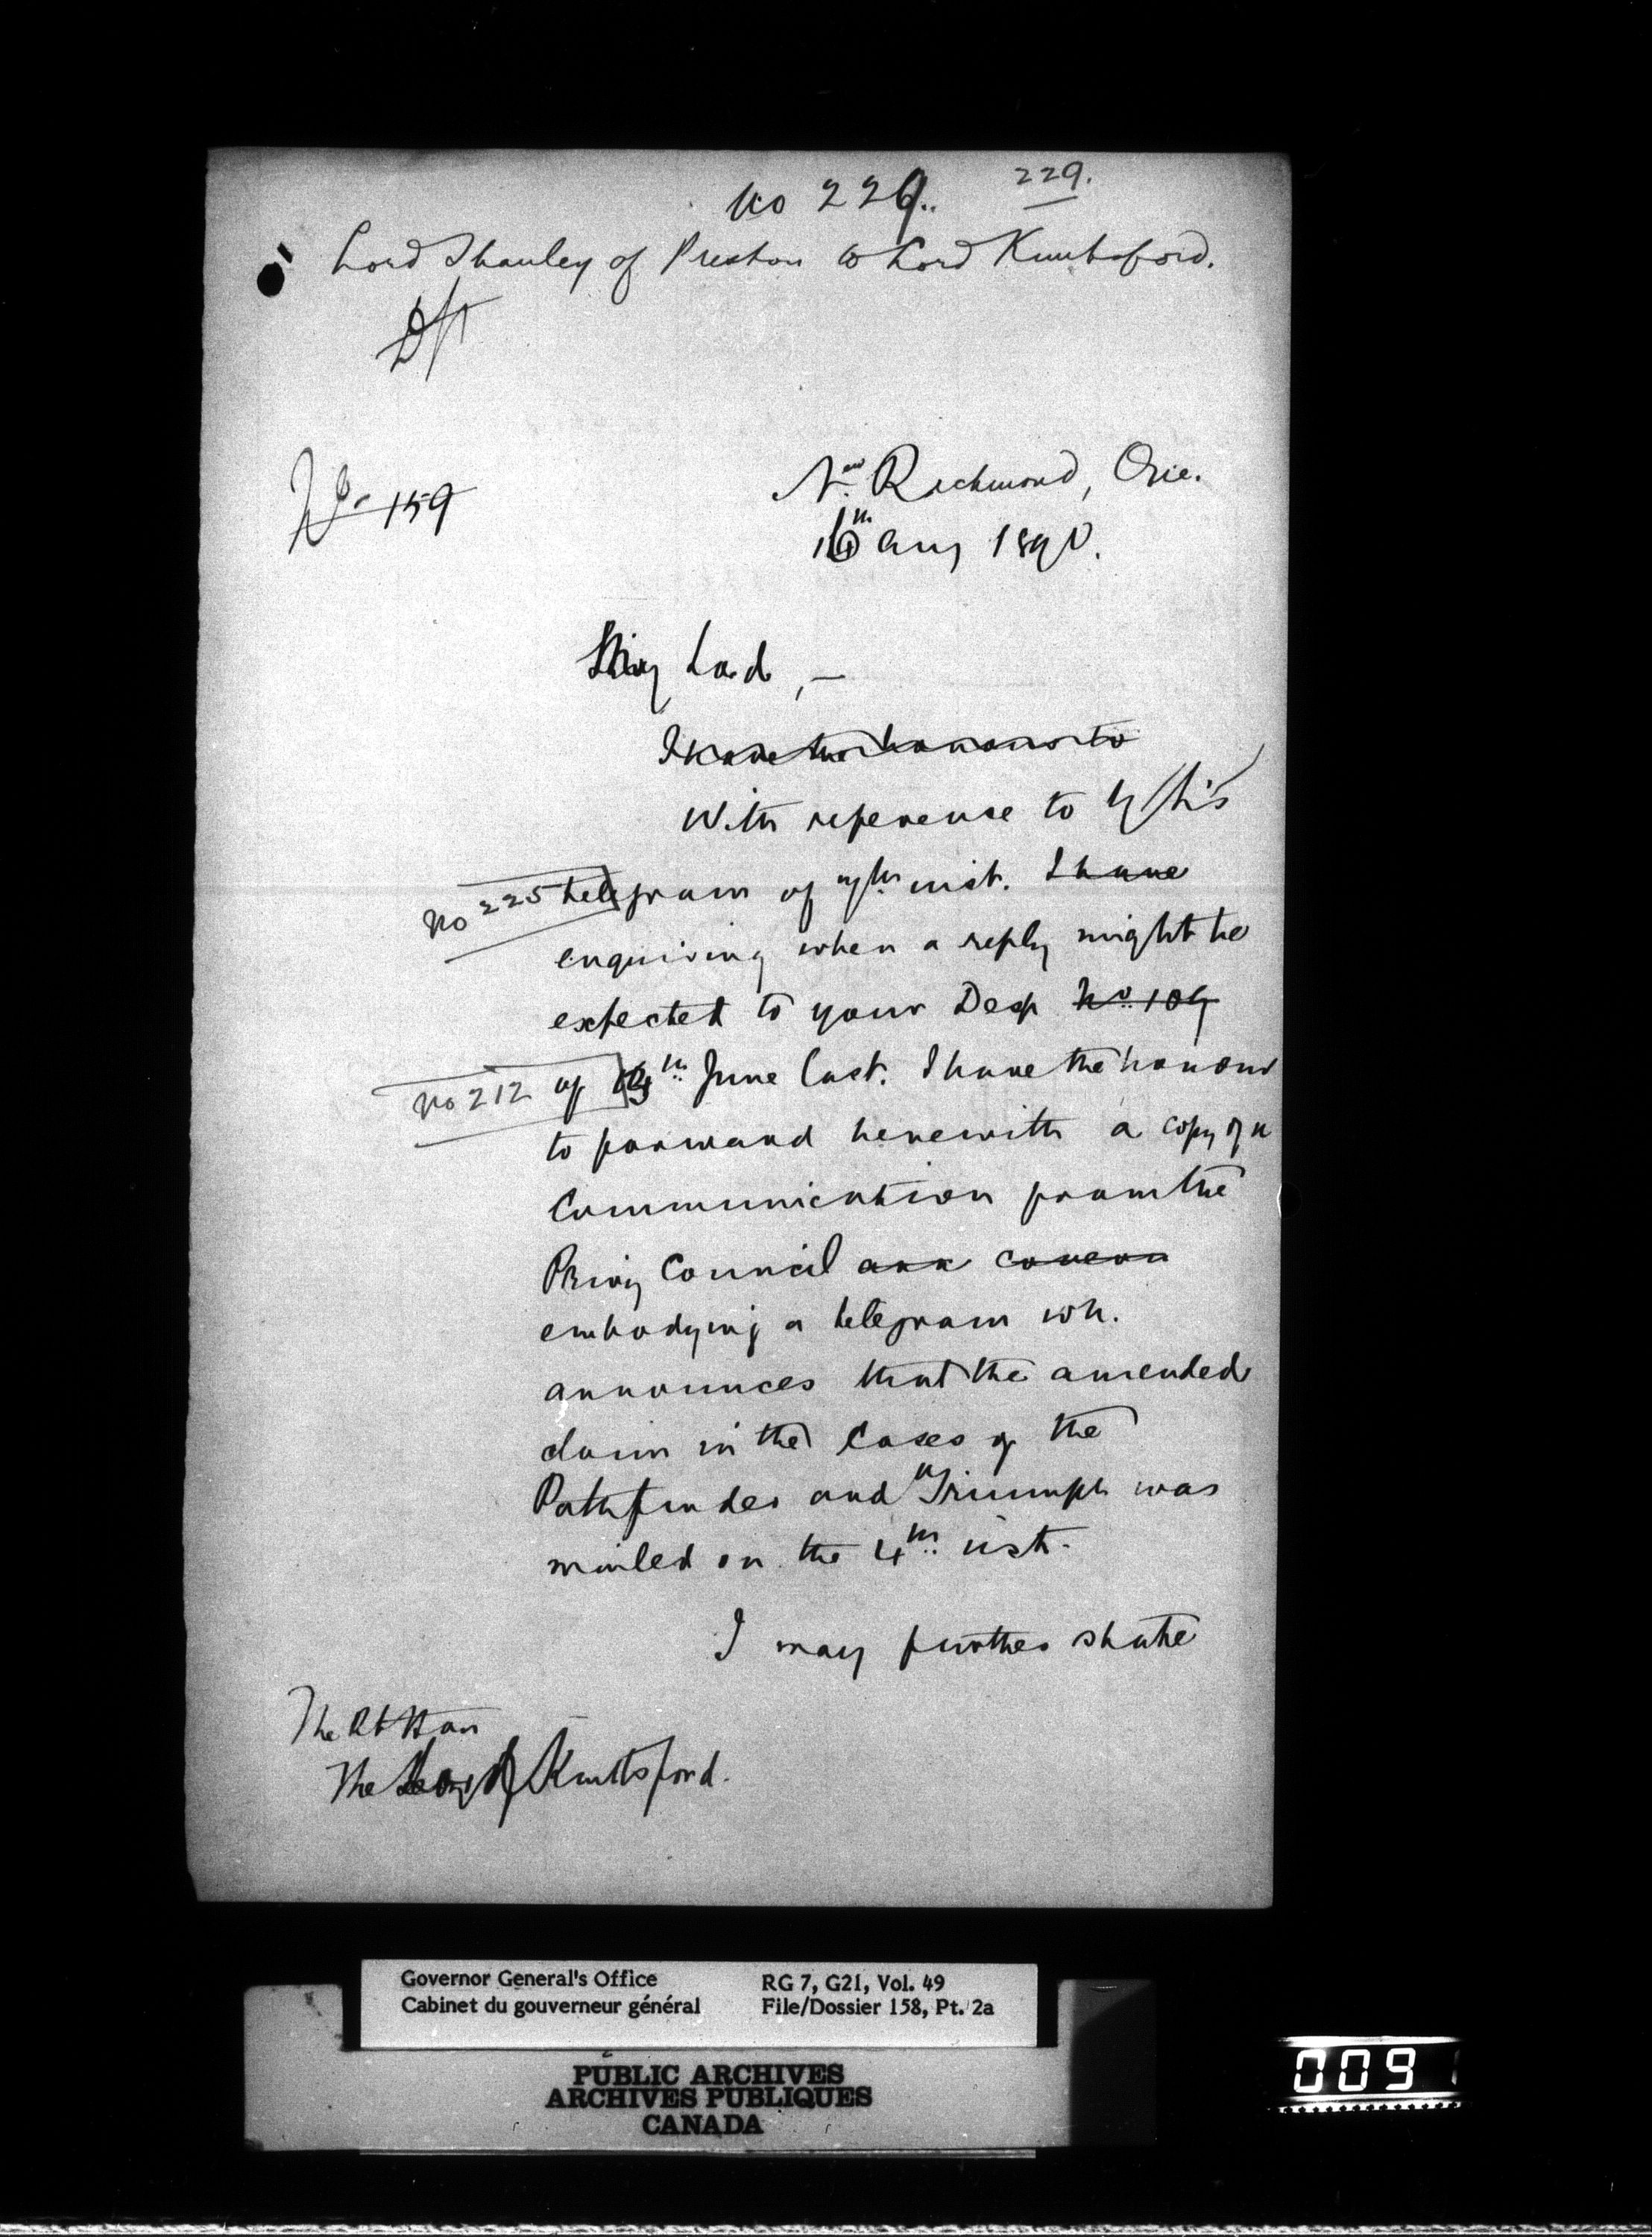 No 229.
229.
Lord Stanley of Preston to Lord Knutsford.
Dft
No 159
New Richmond, Que.
16th Aug 1890.
My Lord, –
I have the honour to
With reference to y/Ls
No 225 telegram of 7th inst. I have
enquiring when a reply might be
expected to your Desp No. 109
No 212 of th June last. I have the honour
to forward herewith a copy of a
Communication from the
Privy Council
embodying a telegram wh.
announces that the amended
claim in the Cases of the
Pathfinder and Triumph was
mailed on the 4th inst.
I may further state
The Rt Hon
The Lord Knutsford.
Governor General's Office
Cabinet du gouverneur général
RG 7, G21, Vol. 49
File/Dossier 158, Pt. 2a
PUBLIC ARCHIVES
ARCHIVES PUBLIQUES
CANADA
009